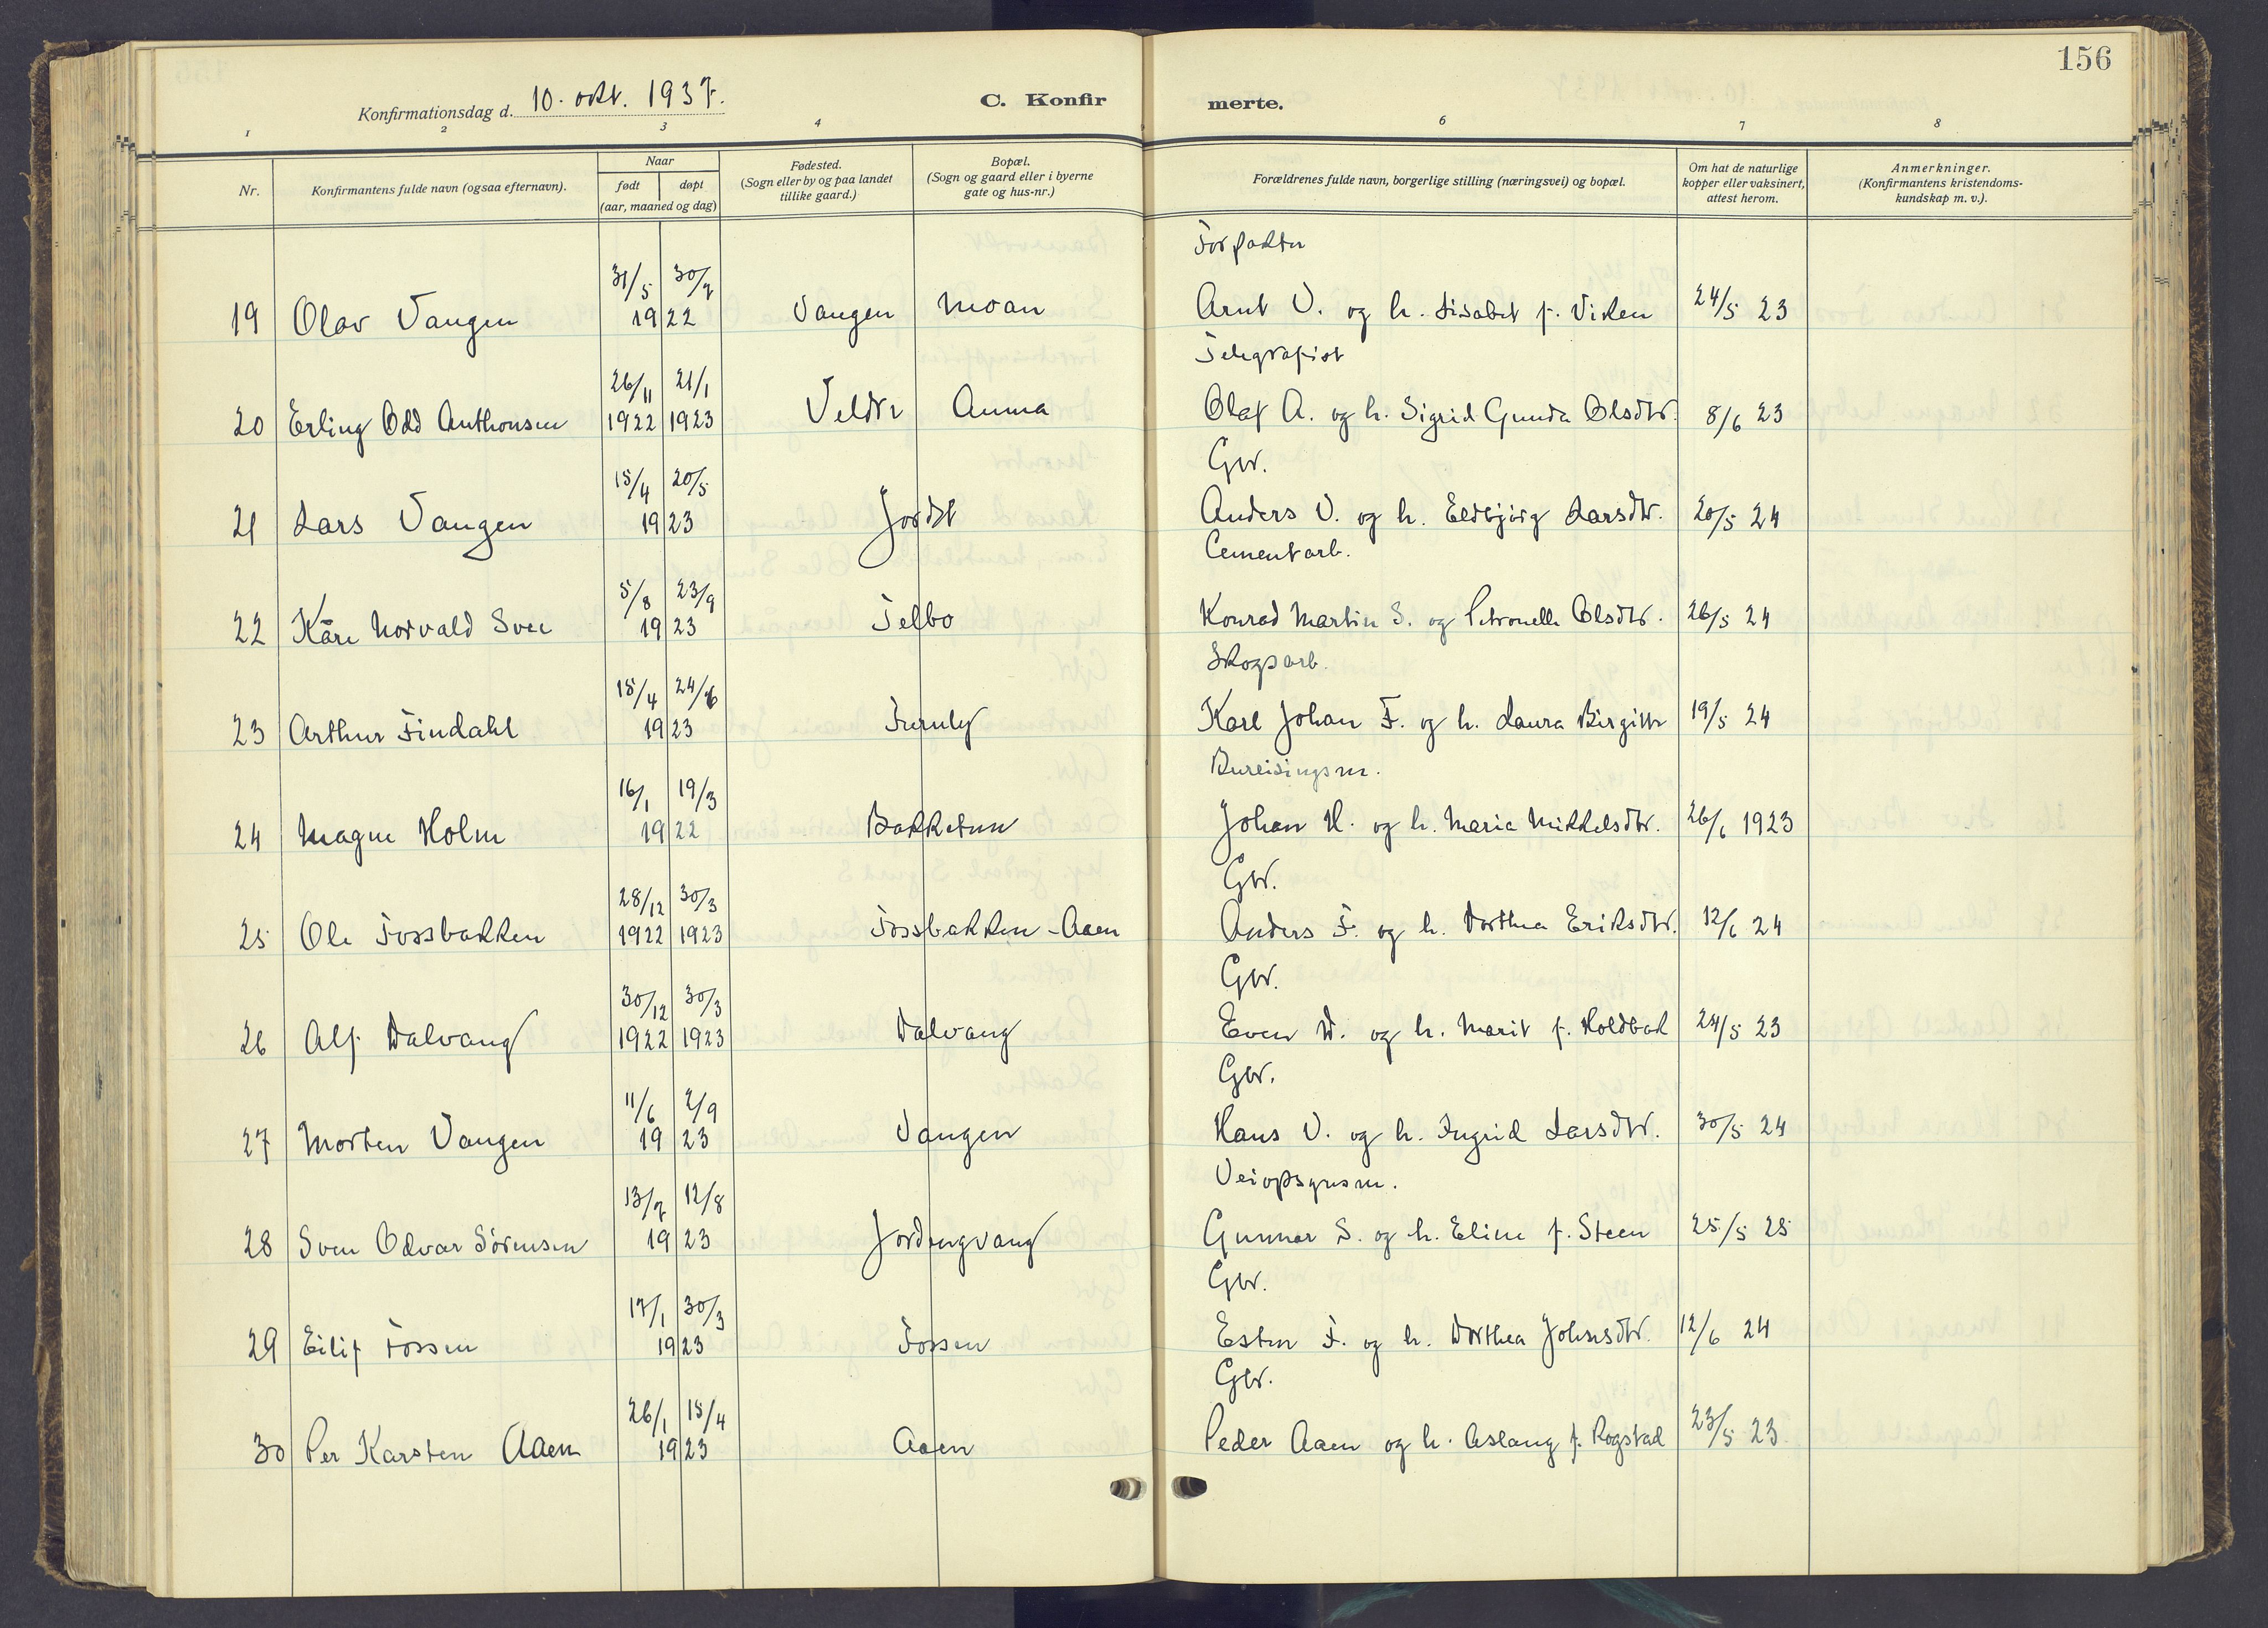 156
Konfirmationsdag d. 10. okt. 1937.
C. Konfirmerte.
1 2 3 4 6 7 8
Nr. Konfirmantens fulde navn (ogsaa efternavn). Naar født døpt (aar, maaned og dag) Fødested. (Sogn eller by og paa landet tillike gaard.) Bopæl. (Sogn og gaard eller i byerne gate og hus-nr.) Forældrenes fulde navn, borgerlige stilling (næringsvei) og bopæl. Om hat de naturlige kopper eller vaksinert, attest herom. Anmerkninger. (Konfirmantens kristendoms-kundskap m. v.).
Forpakter
31/5 30/7
19 Olav Vangen 1922 Vangen Moan Arnt V. og h. Lisabet f. Viken 24/5 23
Telegrafist
26/11 21/1
20 Erling Odd Anthonsen 1922 1923 Veldre Auma Olaf A. og h. Sigrid Gunda Olsdtr. 8/6 23
Gbr.
15/4 20/5
21 Lars Vangen 1923 Jordet Anders V. og h. Eldbjørg Larsdtr. 20/5 24
Cementarb.
5/8 23/9
22 Kåre Norvald Svee 1923 Telbo Konrad Martin S. og Petronelle Olsdtr. 26/5 24
Skogsarb.
15/4 24/6
23 Arthur Findahl 1923 Furuly Karl Johan F. og h. Laura Birgitte 19/5 24
Bureisingsm.
16/1 19/3
24 Magne Holm 1922 Bakketun Johan H. og h. Marie Mikkelsdtr. 26/6 1923
Gbr.
28/12 30/3
25 Ole Fossbakken 1922 1923 Fossbakken - Aaen Anders F. og h. Dorthea Eriksdtr. 12/6 24
Gbr.
30/12 30/3
26 Alf Dalvang 1922 1923 Dalvang Even D. og h. Marit f. Holdbak 24/5 23
Gbr.
11/6 2/9
27 Morten Vangen 1923 Vangen Hans V. og h. Ingrid Larsdtr. 30/5 24
Veiopsynsm.
13/7 12/8
28 Sven Odvar Sørensen 1923 Jordengvang Gunnar S. og h. Eline f. Steen 25/5 25
Gbr.
17/1 30/3
29 Eilif Fossen 1923 Fossen Esten F. og h. Dorthea Johnsdtr. 12/6 24
Gbr.
26/1 15/4
30 Per Karsten Aaen 1923 Aaen Peder Aaen og h. Aslaug f. Rogstad 23/5 23